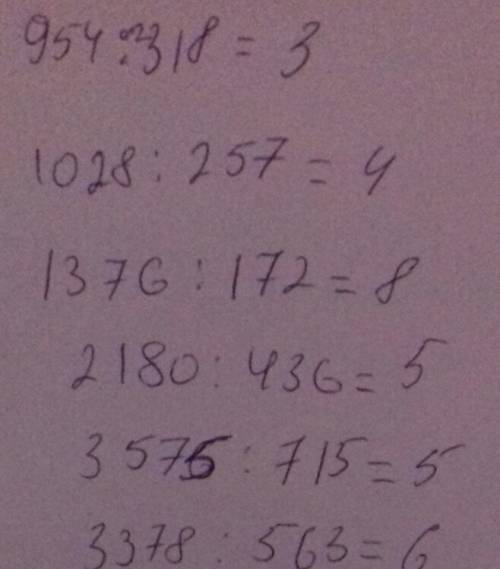 954:318 = 3
1028 : 257 = 4
1376 : 172 = 8
2180 : 436 = 5
3575 : 715 = 5
3378 : 563 = 6